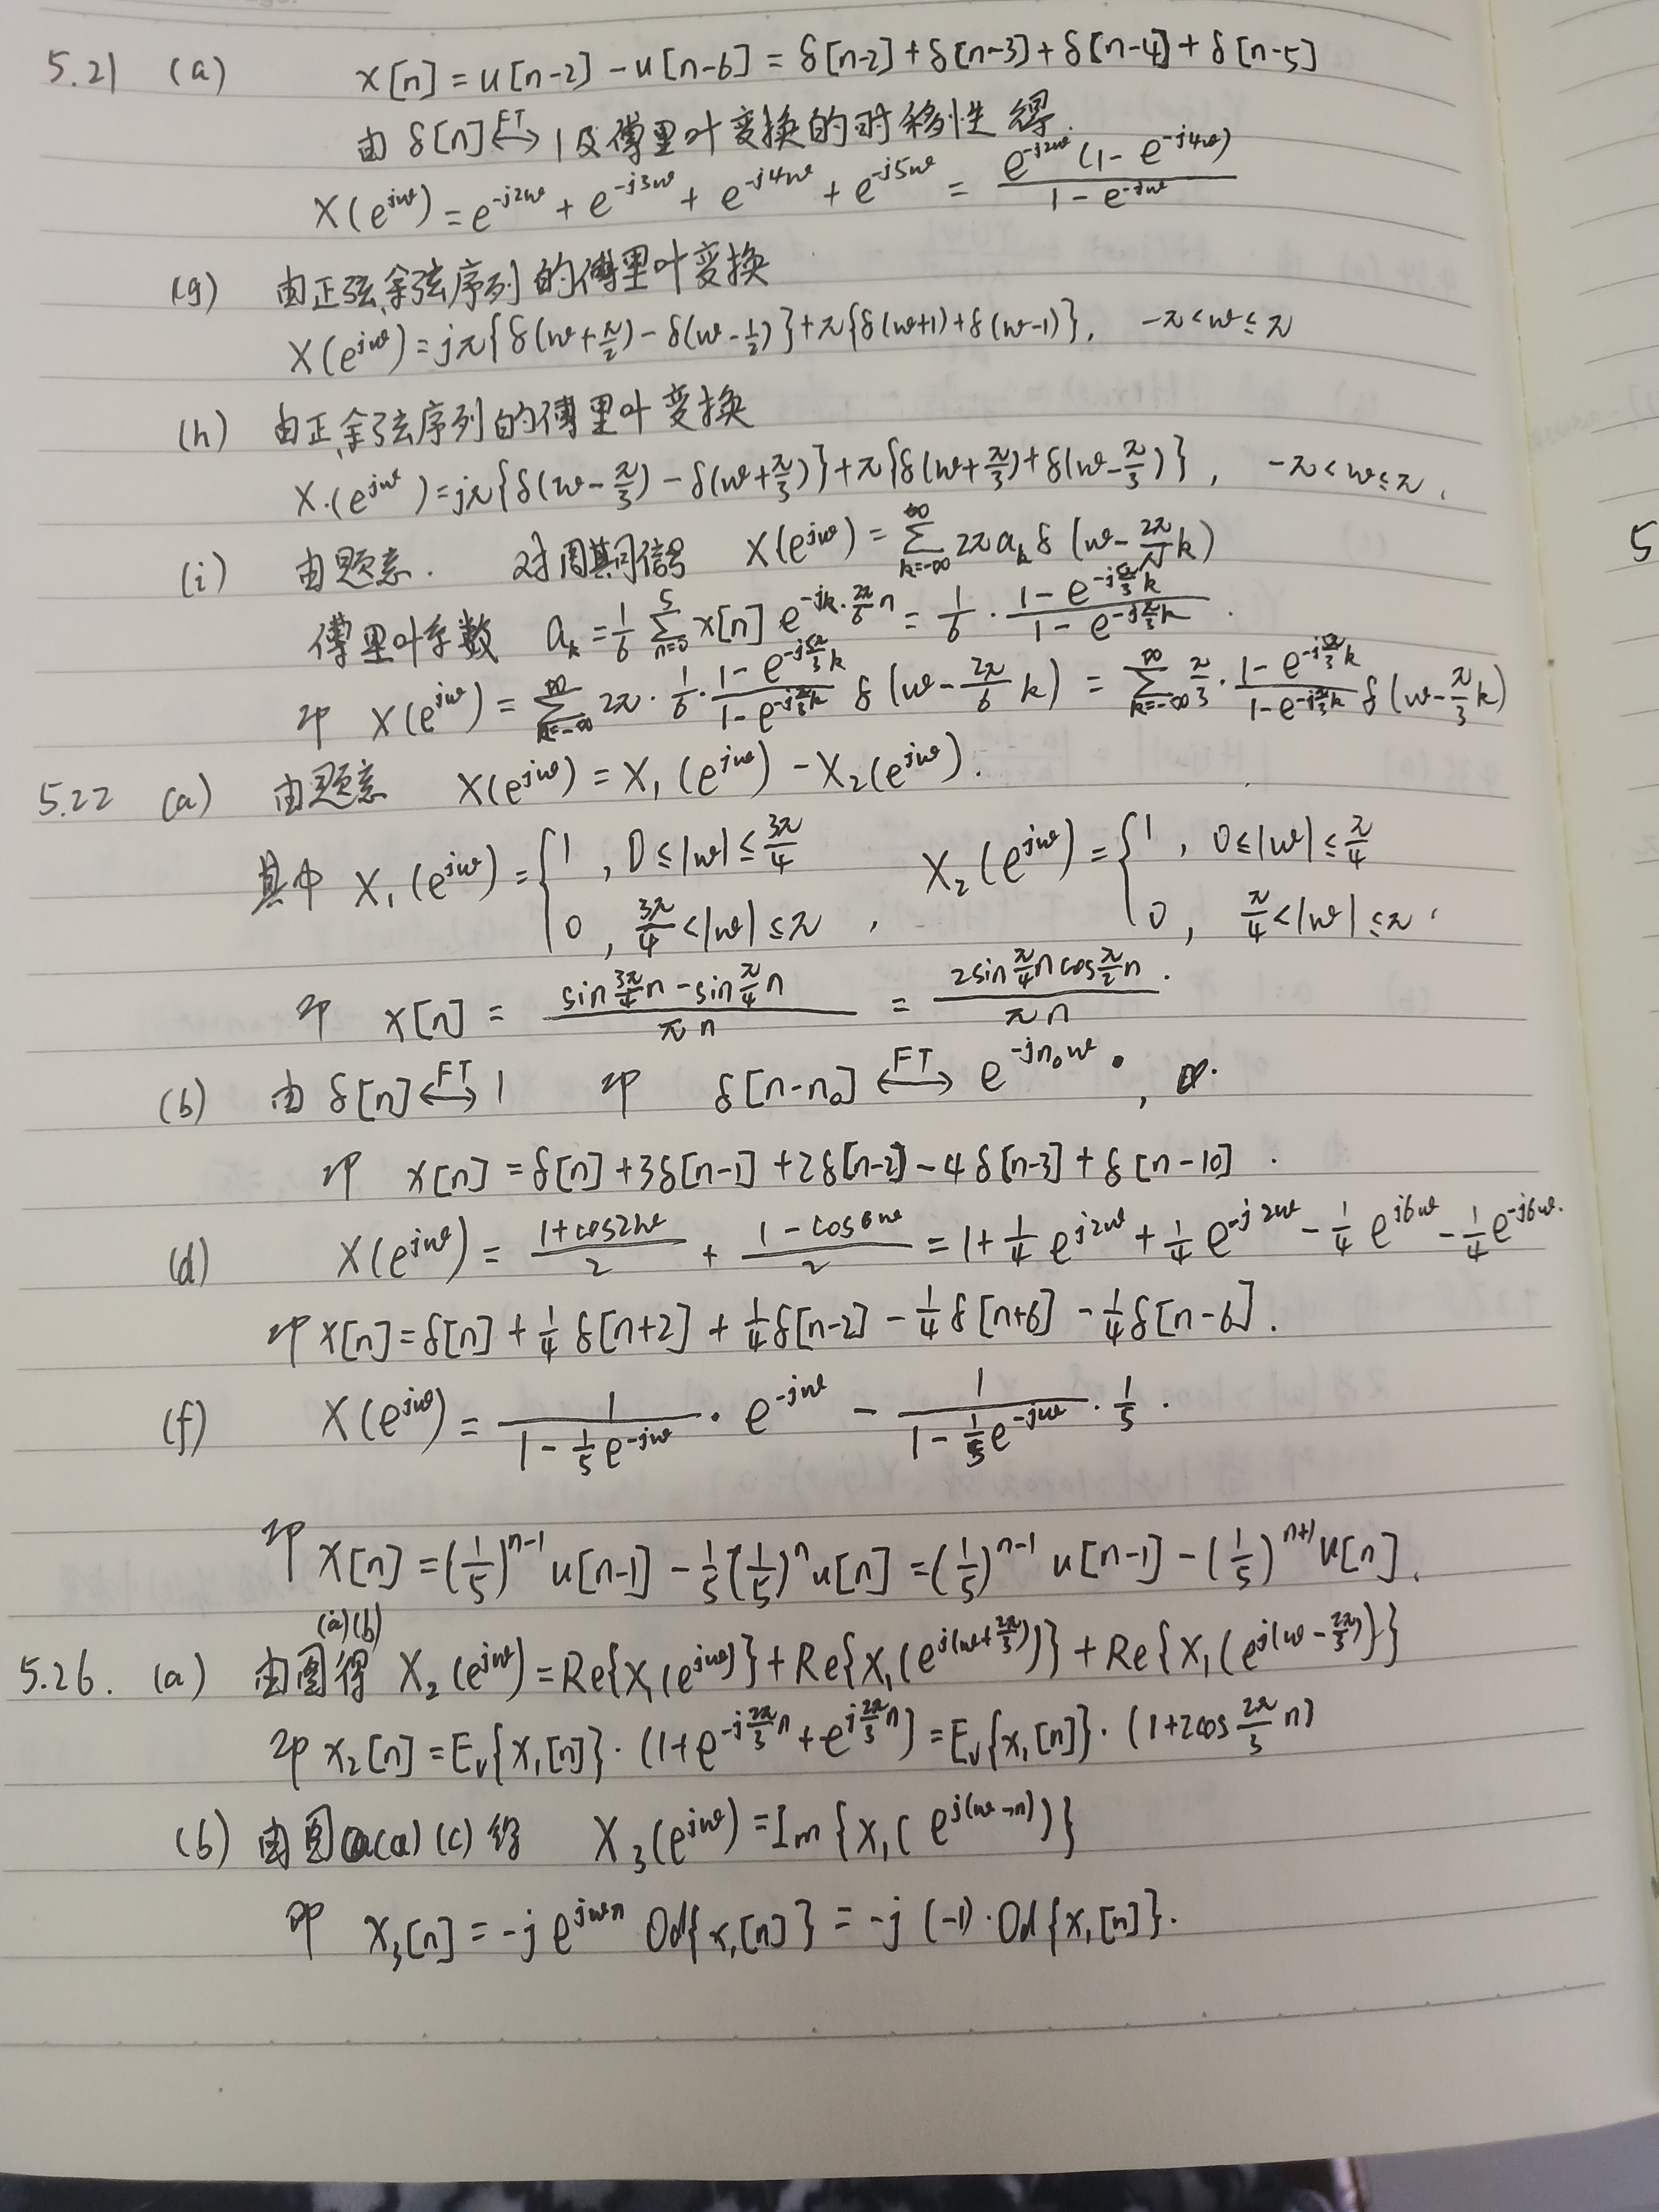 5.21 (a) x[n] = u[n-2] - u[n-6] = δ[n-2] + δ[n-3] + δ[n-4] + δ[n-5]
由 δ[n] ←FT→ 1 及傅里叶变换的时移性 得.
X(e^{jω}) = e^{-j2ω} + e^{-j3ω} + e^{-j4ω} + e^{-j5ω} = \frac{e^{-j2ω}(1 - e^{-j4ω})}{1 - e^{-jω}}
(g) 由正弦、余弦序列的傅里叶变换
X(e^{jω}) = jπ{δ(ω+\frac{π}{2}) - δ(ω-\frac{1}{2})} + π{δ(ω+1) + δ(ω-1)}, -π<ω≤π
(h) 由正、余弦序列的傅里叶变换
X(e^{jω}) = jπ{δ(ω-\frac{π}{3}) - δ(ω+\frac{π}{3})} + π{δ(ω+\frac{π}{3}) + δ(ω-\frac{π}{3})}, -π<ω≤π,
(i) 由题意. 对周期信号 X(e^{jω}) = \sum_{k=-∞}^{∞} 2πa_k δ(ω-\frac{2π}{N}k)
傅里叶系数 a_k = \frac{1}{6} \sum_{n=0}^{5} x[n] e^{-jk·\frac{2π}{6}n} = \frac{1}{6} · \frac{1 - e^{-j\frac{5π}{3}k}}{1 - e^{-j\frac{π}{3}k}}.
即 X(e^{jω}) = \sum_{k=-∞}^{∞} 2π · \frac{1}{6} · \frac{1 - e^{-j\frac{5π}{3}k}}{1 - e^{-j\frac{π}{3}k}} δ(ω-\frac{2π}{6}k) = \sum_{k=-∞}^{∞} \frac{π}{3} · \frac{1 - e^{-j\frac{5π}{3}k}}{1 - e^{-j\frac{π}{3}k}} δ(ω-\frac{π}{3}k)
5
5.22 (a) 由题意 X(e^{jω}) = X_1(e^{jω}) - X_2(e^{jω}).
其中 X_1(e^{jω}) = { 1, 0≤|ω|≤\frac{3π}{4} X_2(e^{jω}) = { 1, 0≤|ω|≤\frac{π}{4}
0, \frac{3π}{4}<|ω|≤π, 0, \frac{π}{4}<|ω|≤π.
即 x[n] = \frac{sin\frac{3π}{4}n - sin\frac{π}{4}n}{πn} = \frac{2sin\frac{π}{4}n cos\frac{π}{2}n}{πn}.
(b) 由 δ[n] ←FT→ 1 即 δ[n-n_0] ←FT→ e^{-jn_0ω},
即 x[n] = δ[n] + 3δ[n-1] + 2δ[n-2] - 4δ[n-3] + δ[n-10].
(d) X(e^{jω}) = \frac{1+cos2ω}{2} + \frac{1-cos6ω}{2} = 1 + \frac{1}{4}e^{j2ω} + \frac{1}{4}e^{-j2ω} - \frac{1}{4}e^{j6ω} - \frac{1}{4}e^{-j6ω}.
即 x[n] = δ[n] + \frac{1}{4}δ[n+2] + \frac{1}{4}δ[n-2] - \frac{1}{4}δ[n+6] - \frac{1}{4}δ[n-6].
(f) X(e^{jω}) = \frac{1}{1-\frac{1}{5}e^{-jω}} · e^{-jω} - \frac{1}{1-\frac{1}{5}e^{-jω}} · \frac{1}{5}.
即 x[n] = (\frac{1}{5})^{n-1} u[n-1] - \frac{1}{5}(\frac{1}{5})^n u[n] = (\frac{1}{5})^{n-1} u[n-1] - (\frac{1}{5})^{n+1} u[n].
5.26. (a) 由图(a)(b)得 X_2(e^{jω}) = Re{X_1(e^{jω})} + Re{X_1(e^{j(ω+\frac{2π}{3})})} + Re{X_1(e^{j(ω-\frac{2π}{3})})}
即 x_2[n] = Ev{x_1[n]} · (1+e^{-j\frac{2π}{3}n} + e^{j\frac{2π}{3}n}) = Ev{x_1[n]} · (1+2cos\frac{2π}{3}n)
(b) 由图(a)(c)得 X_3(e^{jω}) = Im{X_1(e^{j(ω-π)})}
即 x_3[n] = -j e^{jωn} Od{x_1[n]} = -j (-1) · Od{x_1[n]}.